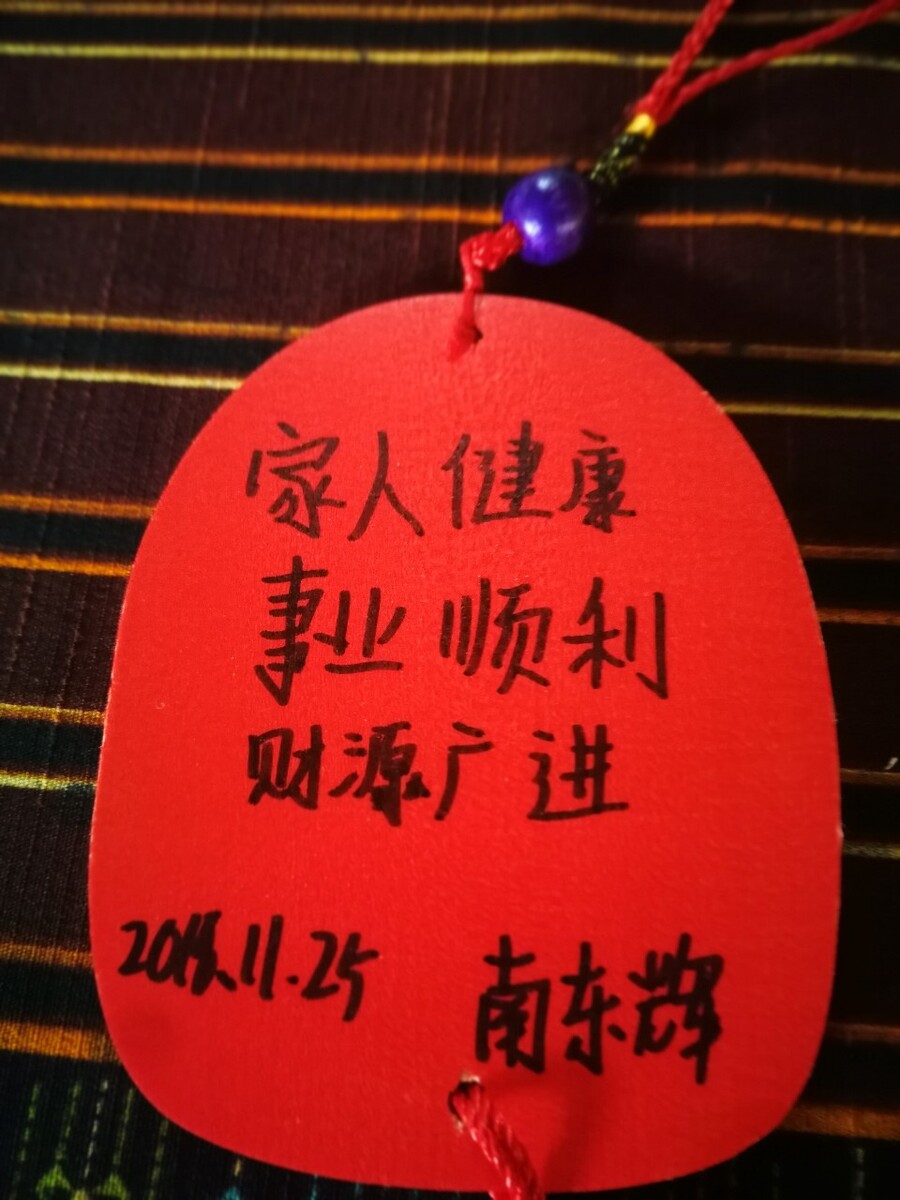 家人健康
事业顺利
财源广进
.11.25
南东辉